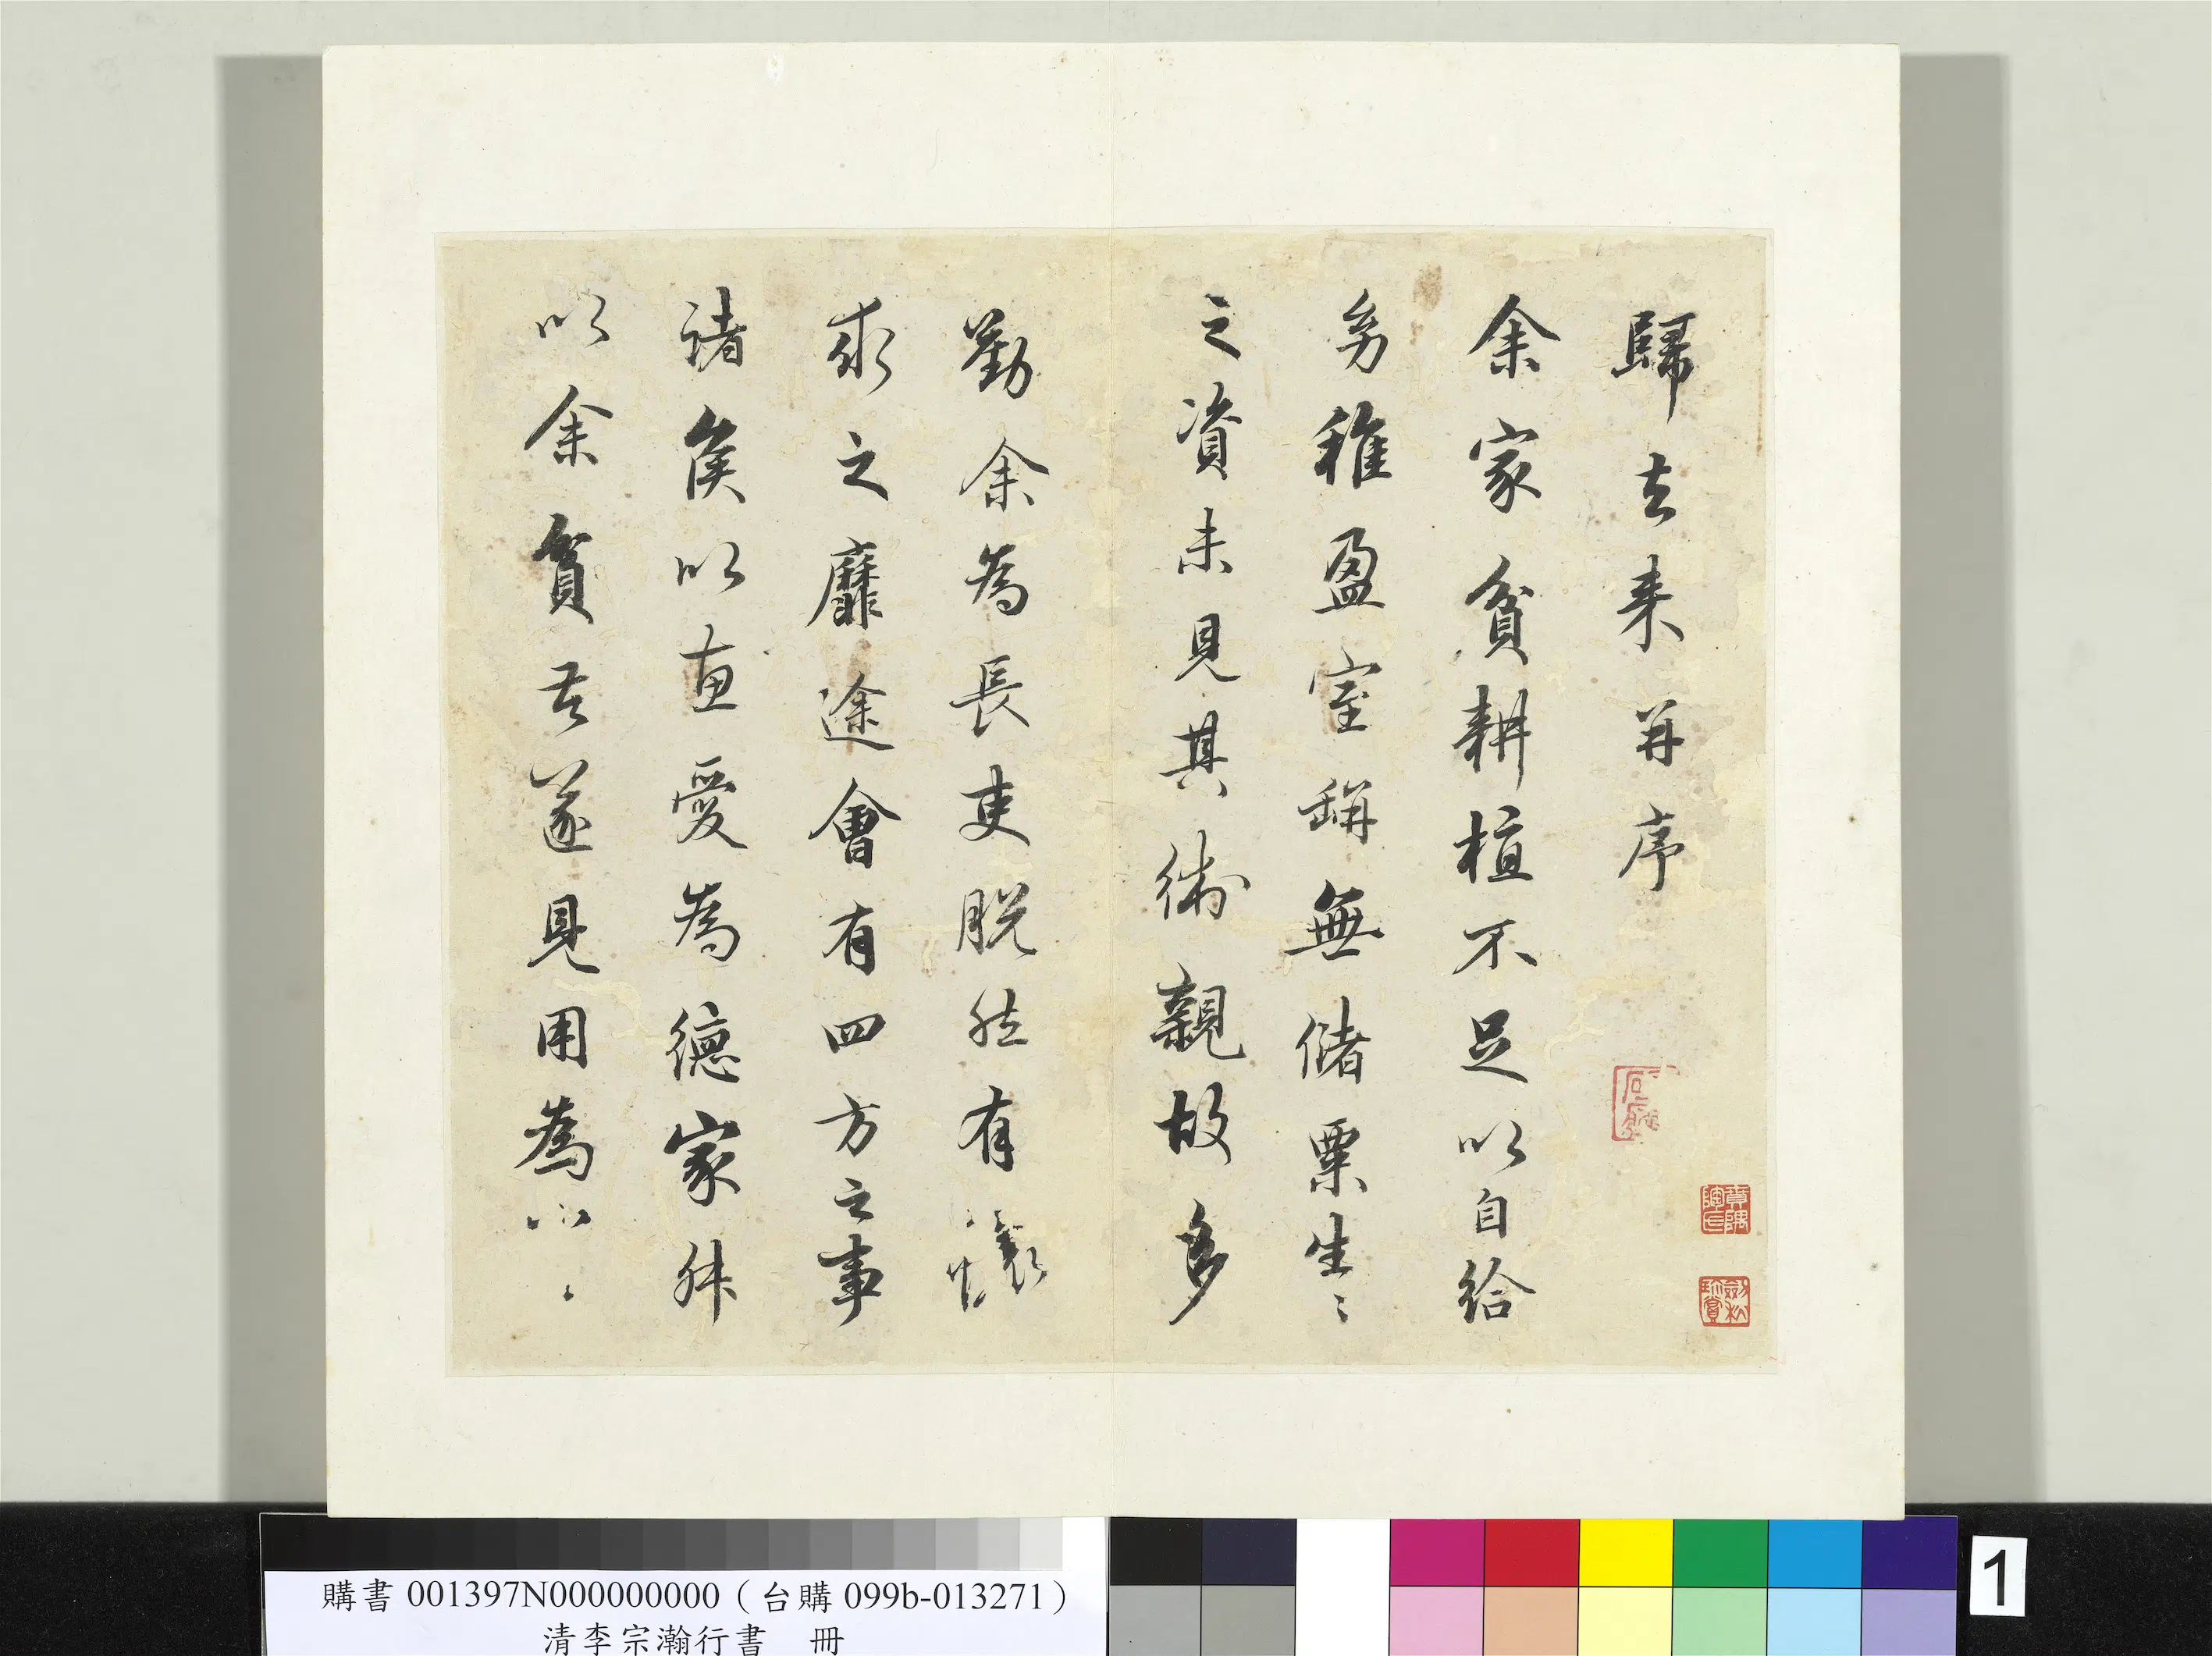 歸去来并序
余家貧耕植不足以自給
幼稚盈室缾無儲粟生〻
之資未見其術親故多
勸余為長吏脱然有懷
求之靡途會有四方之事
諸侯以惠愛為德家叔
以余貧苦遂見用為小〻
購書 001397N000000000（台購 099b-013271）
清李宗瀚行書 冊
1